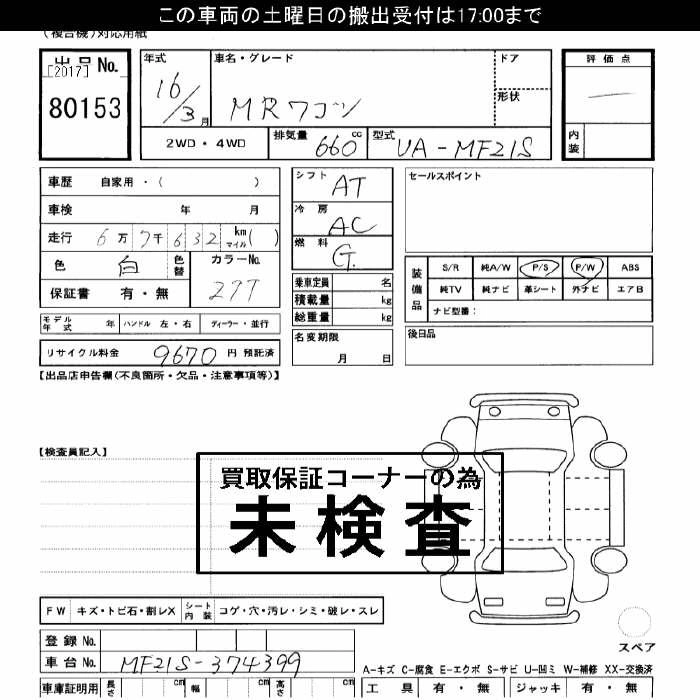 この車両の土曜日の搬出受付は17:00まで
(複合機)対応用紙
出品No.
[2017]
80153
年式
16/3月
車名・グレード
MRワゴン
ドア
形状
2WD・4WD
排気量
660cc
型式
UA-MF21S
評価点
内装
車歴 自家用・( )
車検 年 月
走行 6万7千632 km マイル( )
色 白 色替
カラーNo.
27T
保証書 有・無
シフト AT
冷房 AC
燃料 G.
乗車定員 名
積載量 kg
総重量 kg
セールスポイント
装備品
S/R 純A/W P/S P/W ABS
純TV 純ナビ 革シート 外ナビ エアB
ナビ型番:
モデル年式 年 ハンドル 左・右 ディーラー・並行
リサイクル料金 9670円 預託済
名変期限
月 日
後日品
【出品店申告欄(不良箇所・欠品・注意事項等)】
【検査員記入】
買取保証コーナーの為
未検査
FW キズ・トビ石・割レX シート内装 コゲ・穴・汚レ・シミ・破レ・スレ
スペア
登録No.
車台No. MF21S-374399
A-キズ C-腐食 E-エクボ S-サビ U-凹ミ W-補修 XX-交換済
車庫証明用 長さ cm 幅 cm 高さ cm
工具 有・無 ジャッキ 有・無